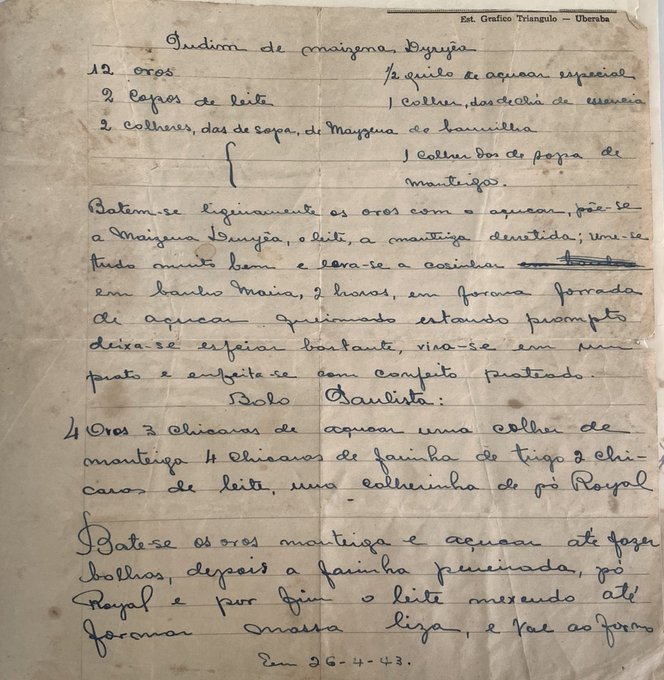 Est. Grafico Triangulo — Uberaba
Pudim de maizena Duryêa
12 ovos
1/2 quilo de açucar especial
2 Copos de leite
1 colher, das de chá de essencia
2 colheres, das de sopa, de Mayzena de baunilha
1 colher das de sopa de
manteiga.
Batem-se ligeiramente os ovos com o açucar, põe-se
a Maizena Duryêa, o leite, a manteiga derretida; une-se
tudo muito bem e leva-se a cosinhar
em banho Maria, 2 horas, em forma forrada
de açucar queimado estando prompto
deixa-se esfriar bastante, vira-se em um
prato e enfeita-se com confeito prateado.
Bolo Paulista:
4 Ovos 3 chicaras de açucar uma colher de
manteiga 4 chicaras de farinha de trigo 2 chi-
caras de leite, uma colherinha de pó Royal
Bate-se os ovos manteiga e açucar até fazer
bolhas, depois a farinha peneirada, pó
Royal e por fim o leite mexendo até
formar massa liza, e vae ao forno
Em 26-4-43.